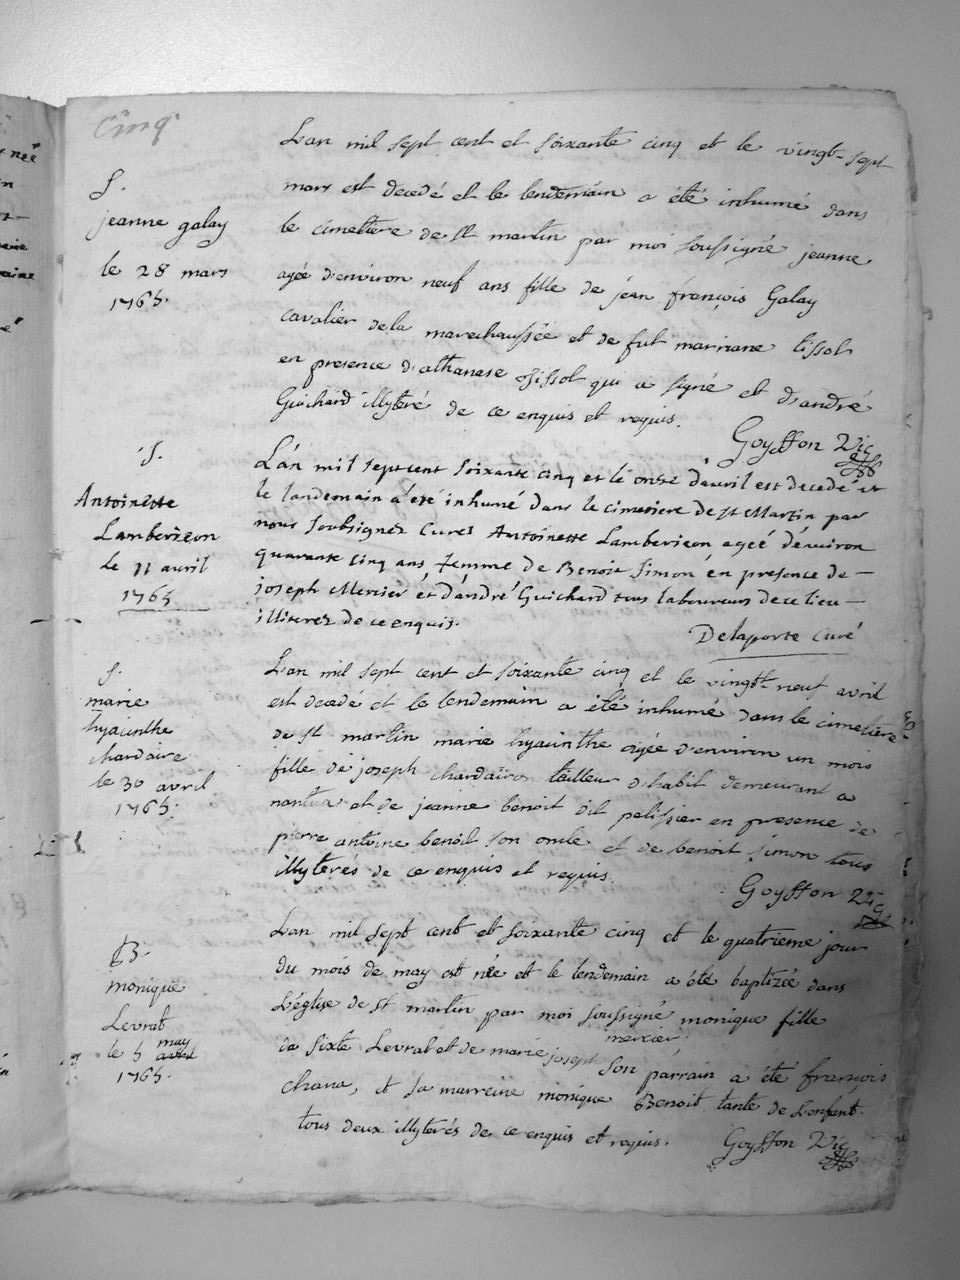 Cinq
L'an mil sept cent et soixante cinq et le vingt-sept
mars est decedé et le lendemain a été inhumé dans
le cimetiere de St martin par moi soussigné jeanne
agée d'environ neuf ans fille de jean françois Galay
cavalier de la marechaussée et de fut marriane tissot
en presence d'athanase tissot qui a signé et d'andré
Guichard illyteré de ce enquis et requis.
Goyffon Vic
S.
jeanne galay
le 28 mars
1765.
L'an mil sept cent soixante cinq et le onze d'avril est decedé et
le landemain a été inhumé dans le cimetiere de St Martin par
nous soubsignez Curez Antoinette Lamberieon ageé d'environ
quarante cinq ans, femme de Benoit Simon en presence de
joseph Mercier et d'andré Guichard tous laboureurs de ce lieu
illiterez de ce enquis.
Delaporte Curé
S.
Antoinette
Lamberieon
le 11 avril
1765
L'an mil sept cent et soixante cinq et le vingt-neuf avril
est decedé et le lendemain a été inhumé dans le cimetiere
de St martin marie hyacinthe agée d'environ un mois
fille de joseph chardaire tailleur d'habit demeurant a
nantua et de jeanne benoit dit pelissier en presence de
pierre antoine benoit son oncle et de benoit simon tous
illyterés de ce enquis et requis.
Goyffon Vic
S.
marie
hyacinthe
chardaire
le 30 avril
1765.
L'an mil sept cent et soixante cinq et le quatrieme jour
du mois de may est née et le lendemain a été baptizée dans
L'église de St martin par moi soussigné monique fille
de sixte Levrat et de marie joseph mercier son parrain a été françois
chana, et sa marreine monique Benoit tante de L'enfant
tous deux illyterés de ce enquis et requis.
Goyffon Vic
B.
monique
Levrat
le 5 avril may
1765.